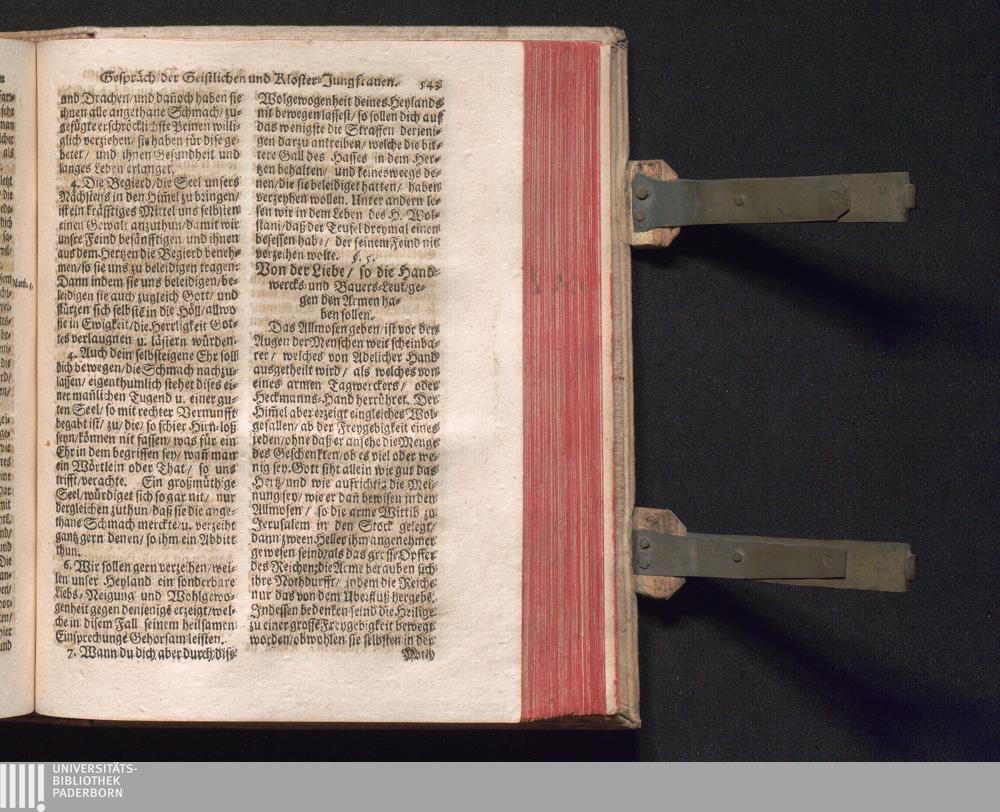 Gespräch/der Geistlichen und Kloster-Jungfrauen. 543
und Drachen/und dañoch haben sie
ihnen alle angethane Schmach/ zu-
gefügte erschröcklichste Peinen willi-
glich verziehen/ sie haben für dise ge-
betet/ und ihnen Gesundheit und
langes Leben erlanget.
4. Die Begierd/die Seel unsers
Nächstens in den Him̃el zu bringen/
ist ein kräfftiges Mittel uns selbsten
einen Gewalt anzuthun/damit wir
unsre Feind besänfftigen und ihnen
aus dem Hertzen die Begierd beneh-
men/ so sie uns zu beleidigen tragen:
Dann indem sie uns beleidigen/be-
leidigen sie auch zugleich Gott/ und
stürzen sich selbstẽ in die Höll/allwo
sie in Ewigkeit/die Herrligkeit Got-
tes verlaugnen u. lästern würden.
4. Auch dein selbsteigene Ehr soll
dich bewegen/die Schmach nachzu-
lassen/ eigenthumlich stehet dises ei-
ner mañlichen Tugend u. einer gu-
ten Seel/ so mit rechter Vernunfft
begabt ist/ zu/die/ so schier Hirn-loß
seyn/können nit fassen/ was für ein
Ehr in dem begriffen sey/ wañ man
ein Wörtlein oder That/ so uns
trifft/verachte. Ein großmüthige
Seel/würdiget sich so gar nit/ nur
dergleichen zuthun/daß sie die ange-
thane Schmach merckte/u. verzeiht
gantz gern denen/ so ihm ein Abbitt
thun.
6. Wir sollen gern verzeihen/wei-
len unser Heyland ein sonderbare
Liebs-Neigung und Wohlgewo-
genheit gegen denjenigẽ erzeigt/wel-
che in disem Fall seinem heilsamen
Einsprechunge Gehorsam leisten.
7. Wann du dich aber durch dise
Wolgewogenheit deines Heylands
nit bewegen lassest/ so sollen dich auf
das wenigste die Straffen derjeni-
gen darzu antreiben/ welche die bit-
tere Gall des Hasses in dem Her-
tzen behalten/ und keineswegs de-
nen/die sie beleidiget hatten/ haben
verzeyhen wollen. Unter andern le-
sen wir in dem Leben des H. Wol-
stani/daß der Teufel dreymal einen
besessen habe/ der seinem Feind nit
verzeihen wolte.
§. 5.
Von der Liebe/ so die Hand-
wercks- und Baurs-Leut/ge-
gen den Armen ha-
ben sollen.
Das Allmosen geben/ ist vor den
Augen der Menschen weit scheinba-
rer/ welches von Adelicher Hand
ausgetheilt wird/ als welches von
eines armen Tagwerckers/ oder
Heckmanns-Hand herrühret. Der
Him̃el aber erzeigt ein gleiches Wol-
gefallen/ ab der Freygebigkeit eines
jeden/ohne daß er ansehe die Menge
des Geschenkten/ ob es viel oder we-
nig sey. Gott siht allein wie gut das
Hertz/und wie aufrichtig die Mei-
nung sey/ wie er dañ bewisen in den
Allmosen/ so die arme Wittib zu
Jerusalem in den Stock gelegt/
dann zween Heller ihm angenehmer
gewesen seind/als das grosse Opffer
des Reichen;die Arme berauben sich
ihre Nothdurfft/ indem die Reiche
nur das von dem Uberfluß hergebẽ.
Indessen bedenken seind die Heilige
zu einer grosse Freygebigkeit bewegt
worden/obwohlen sie selbsten in der
Noth
Matth. 5.
UNIVERSITÄTS-
BIBLIOTHEK
PADERBORN